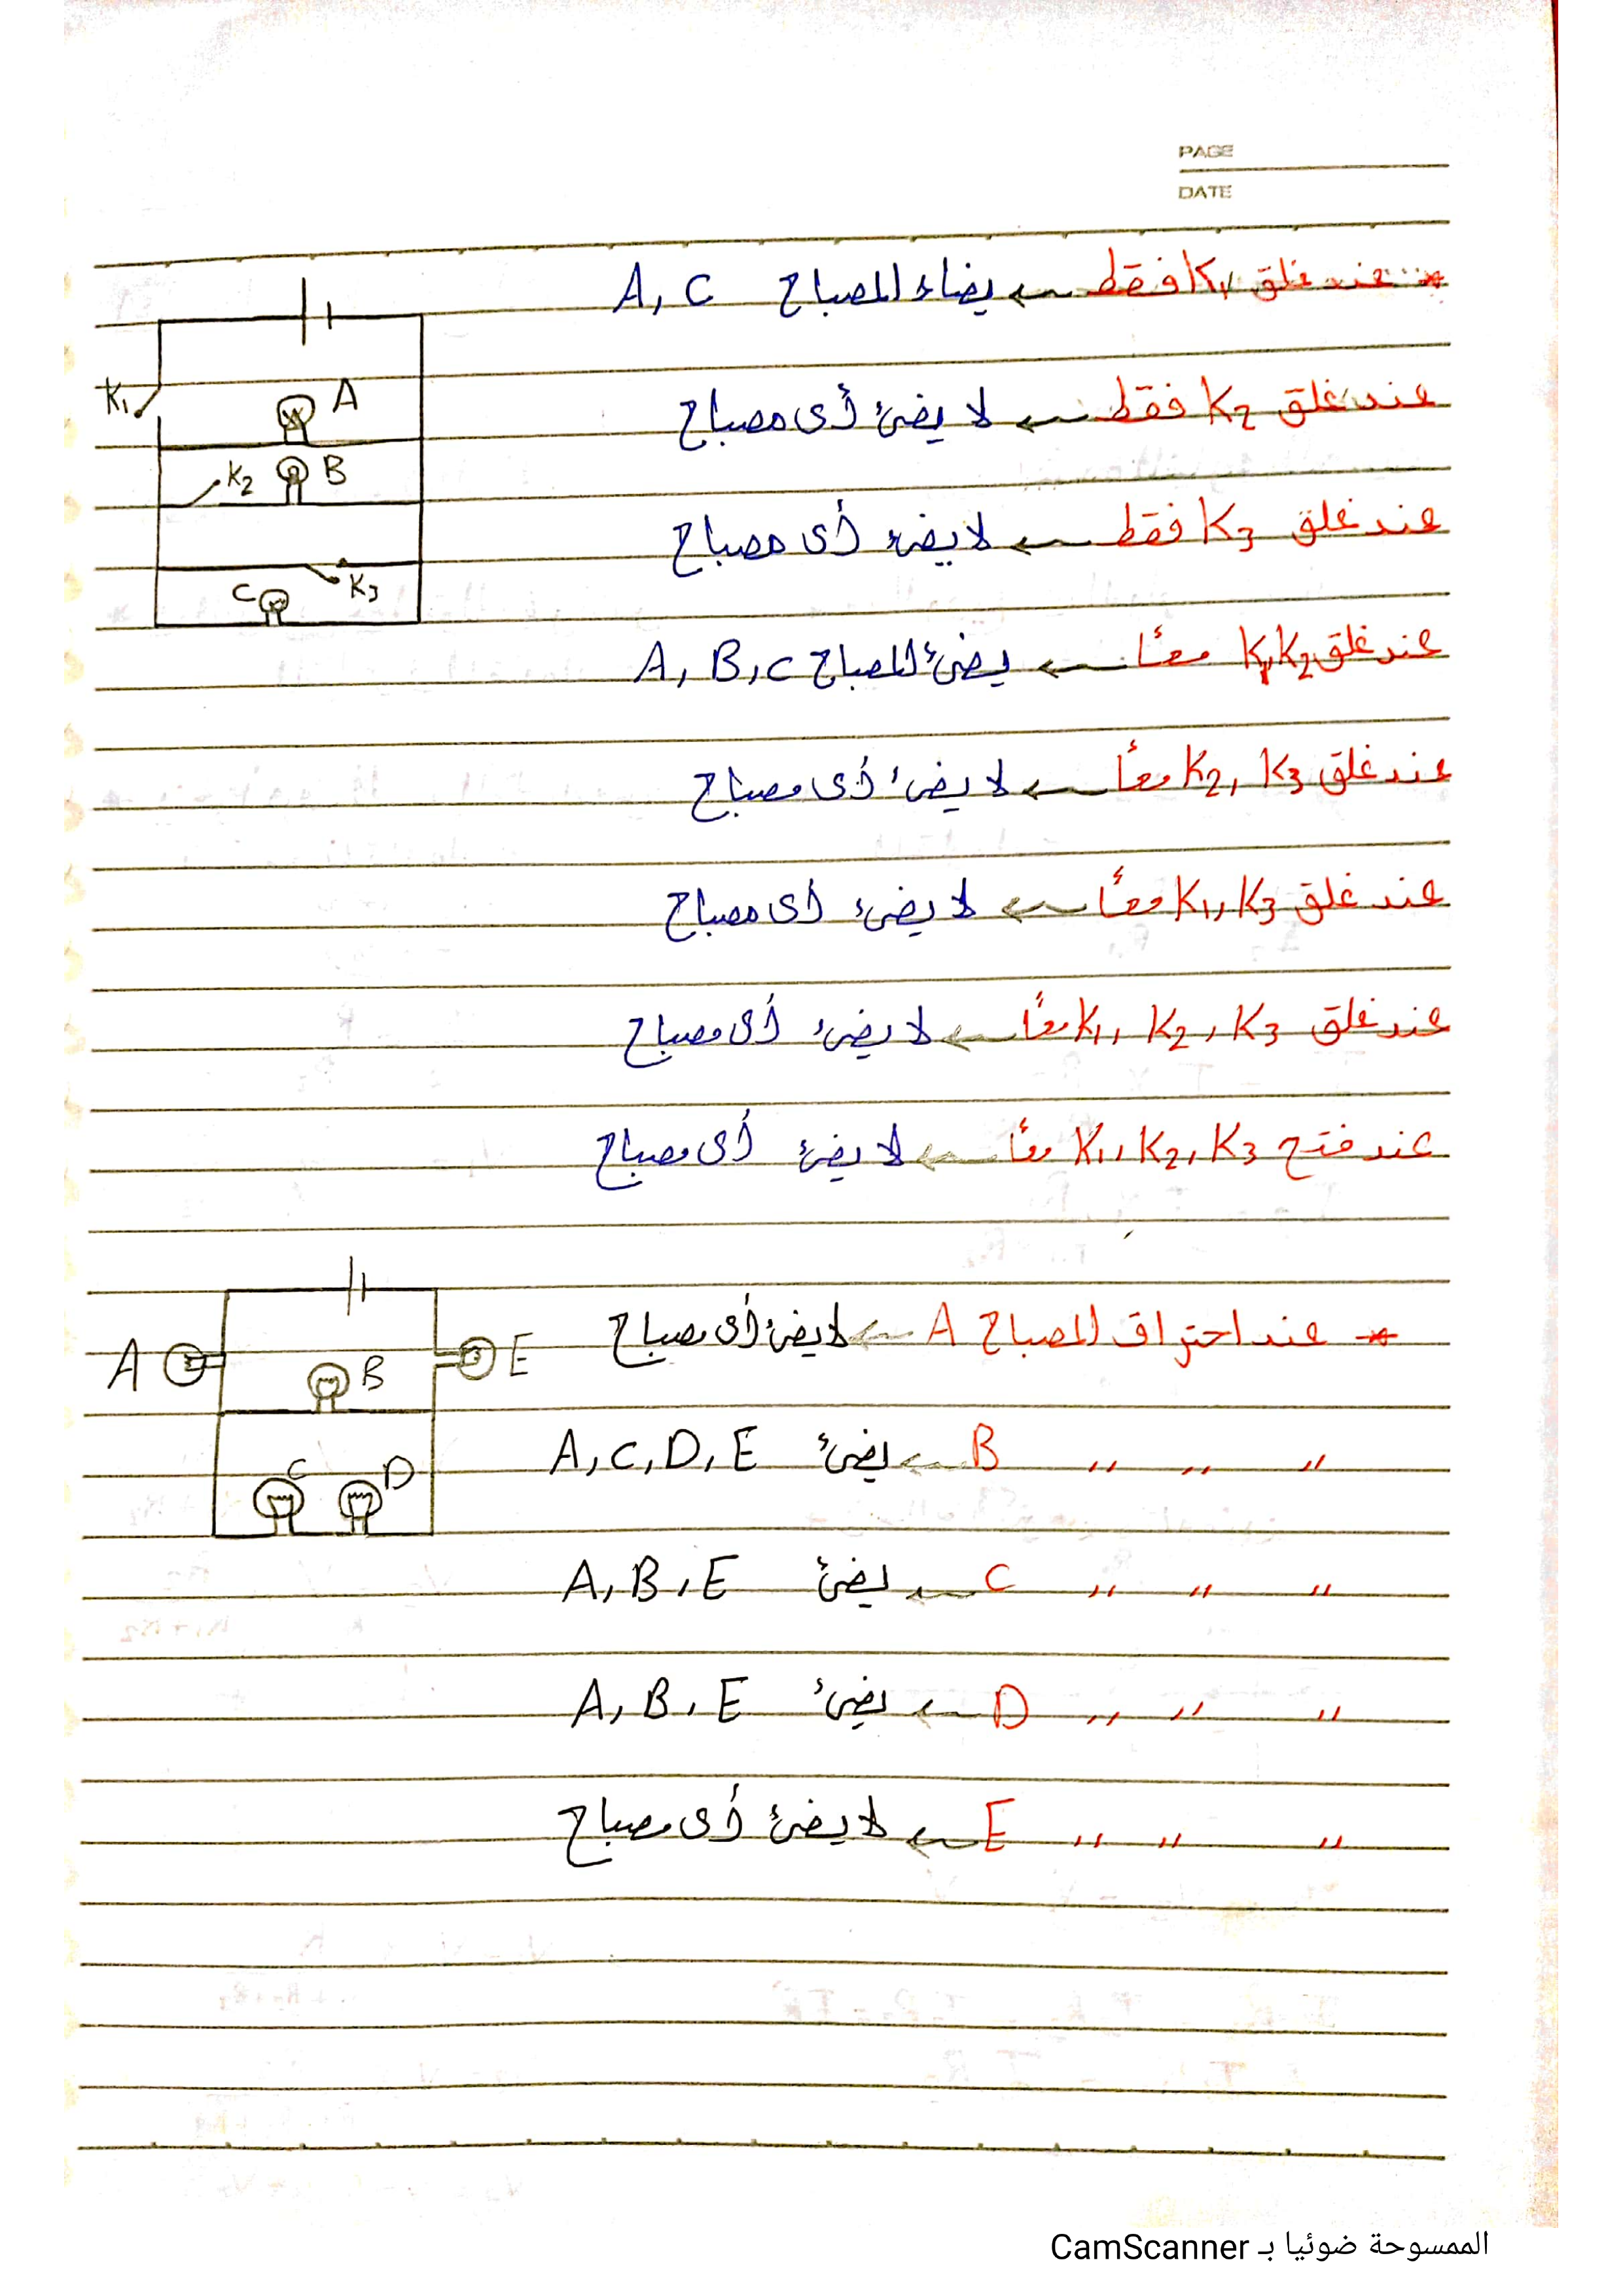 PAGE
DATE
* عند غلق K1 فقط ← يضاء المصباح A, C
عند غلق K2 فقط ← لا يضئ أى مصباح
عند غلق K3 فقط ← لا يضئ أى مصباح
عند غلق K1, K2 معًا ← يضئ المصباح A, B, C
عند غلق K2, K3 معًا ← لا يضئ أى مصباح
عند غلق K1, K3 معًا ← لا يضئ أى مصباح
عند غلق K1, K2, K3 معًا ← لا يضئ أى مصباح
عند فتح K1, K2, K3 معًا ← لا يضئ أى مصباح
K1
A
K2 B
C K3
* عند احتراق المصباح A ← لا يضئ أى مصباح
" " " B ← يضئ A, C, D, E
" " " C ← يضئ A, B, E
" " " D ← يضئ A, B, E
" " " E ← لا يضئ أى مصباح
A B E
C D
الممسوحة ضوئيا بـ CamScanner